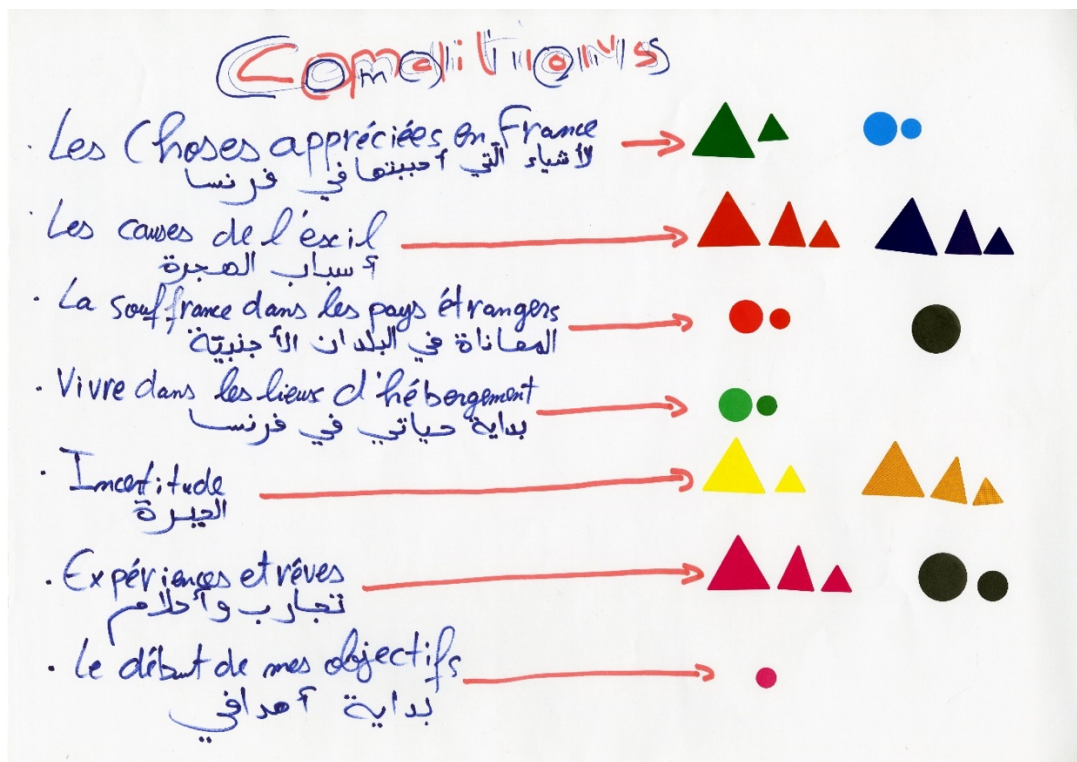 Comditions
. Les Choses appréciées en France
الأشياء التي أحببتها في فرنسا
. Les causes de l'éxil
أسباب الهجرة
. La souffrance dans les pays étrangers
المعاناة في البلدان الأجنبية
. Vivre dans les lieux d'hébergement
بداية حياتي في فرنسا
. Incertitude
الحيرة
. Expériences et rêves
تجارب وأحلام
. Le début de mes objectifs
بداية أهدافي